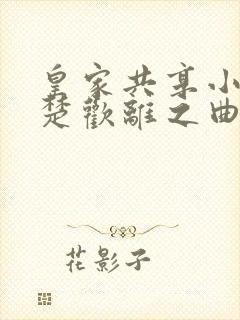 皇家共享小
楚歡離之曲
花影子